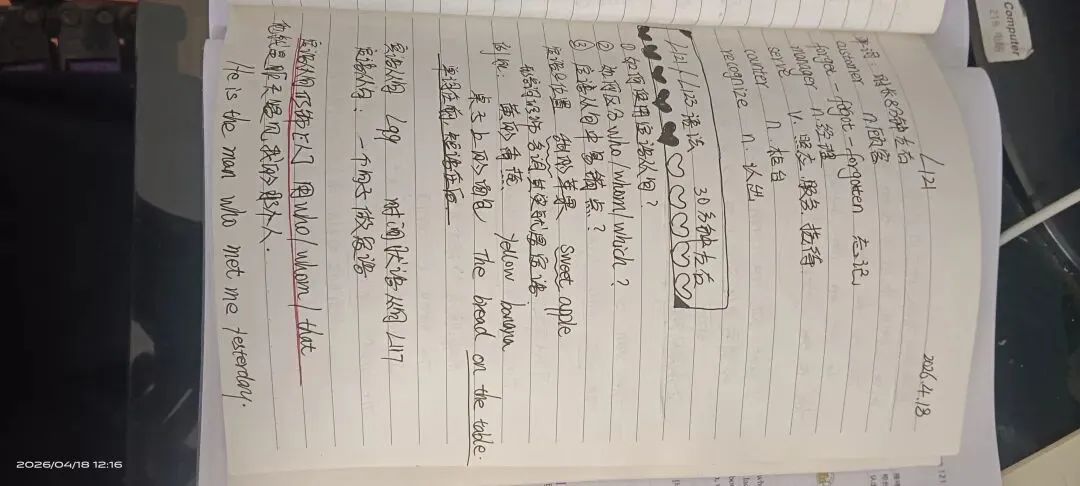 L121
2026.4.18
单词：时长8分钟左右
customer n.顾客
forget - forgot - forgotten 忘记
manager n.经理
serve v.照应,服务,接待
counter n.柜台
recognize n.认出
L121/L123语法 30分钟左右
①如何使用定语从句？
②如何区分who/whom/which？
③定语从句中易错点？
定语位置 我的苹果 Sweet apple
例如：黄的香蕉 yellow banana
桌子上的面包 The bread on the table.
单词在前,短语在后
宾语从句 L99 时间状语从句 L117
定语从句：一个句子做定语
定语从句修饰长人 用who/whom/that
He is the man who met me yesterday.
Computer
2026/04/18 12:16